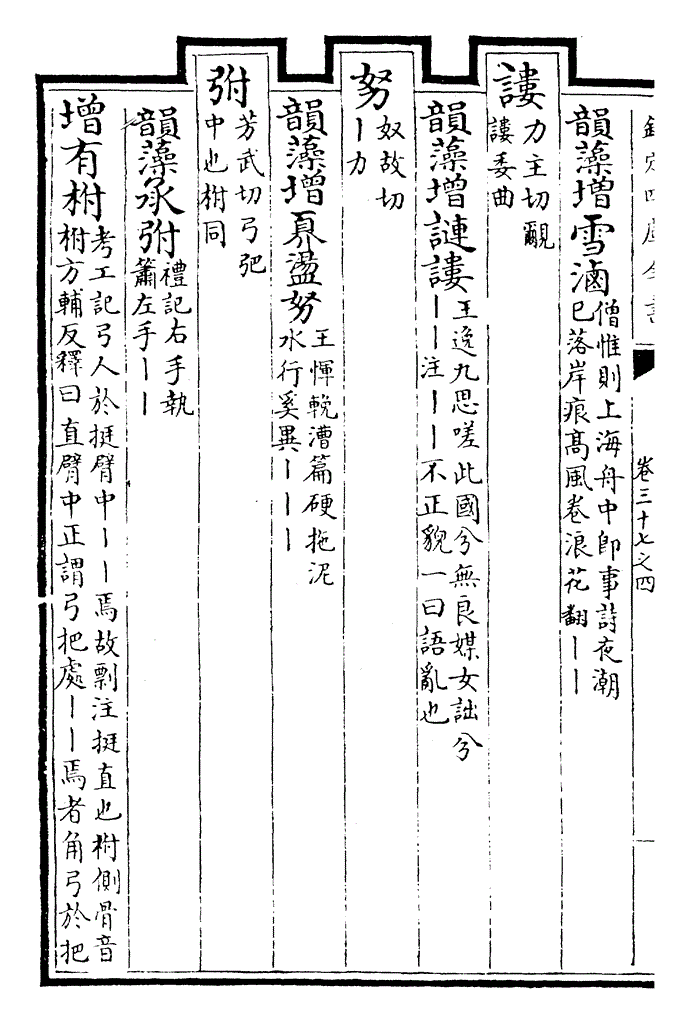 欽定四庫全書
卷三十七之四
韻藻增雪滷
僧惟則上海舟中卽事詩夜潮
巳落岸痕高風卷浪花翻丨丨
謱
力主切覼
謱委曲
韻藻增謰謱
王逸九思嗟此國兮無良媒女詘兮
丨丨注丨丨不正貌一曰語亂也
努
奴故切
丨力
韻藻增奡盪努
王惲輓漕篇硬拖泥
水行奚異丨丨丨
弣
芳武切弓弝
中也柎同
韻藻承弣
禮記右手執
簫左手丨丨
增有柎
考工記弓人於挺臂中丨丨焉故剽注挺直也柎側骨音
柎方輔反釋曰直臂中正謂弓把處丨丨焉者角弓於把